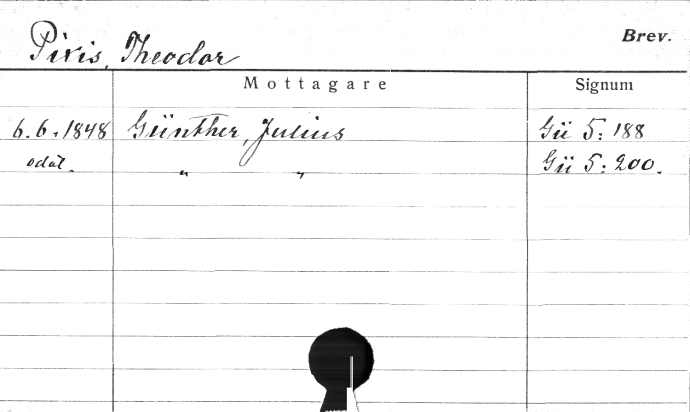 Pixis, Theodor Brev.
Mottagare Signum
6.6.1848 Günther, Julius Gü 5:188
odat. " " Gü 5:200.